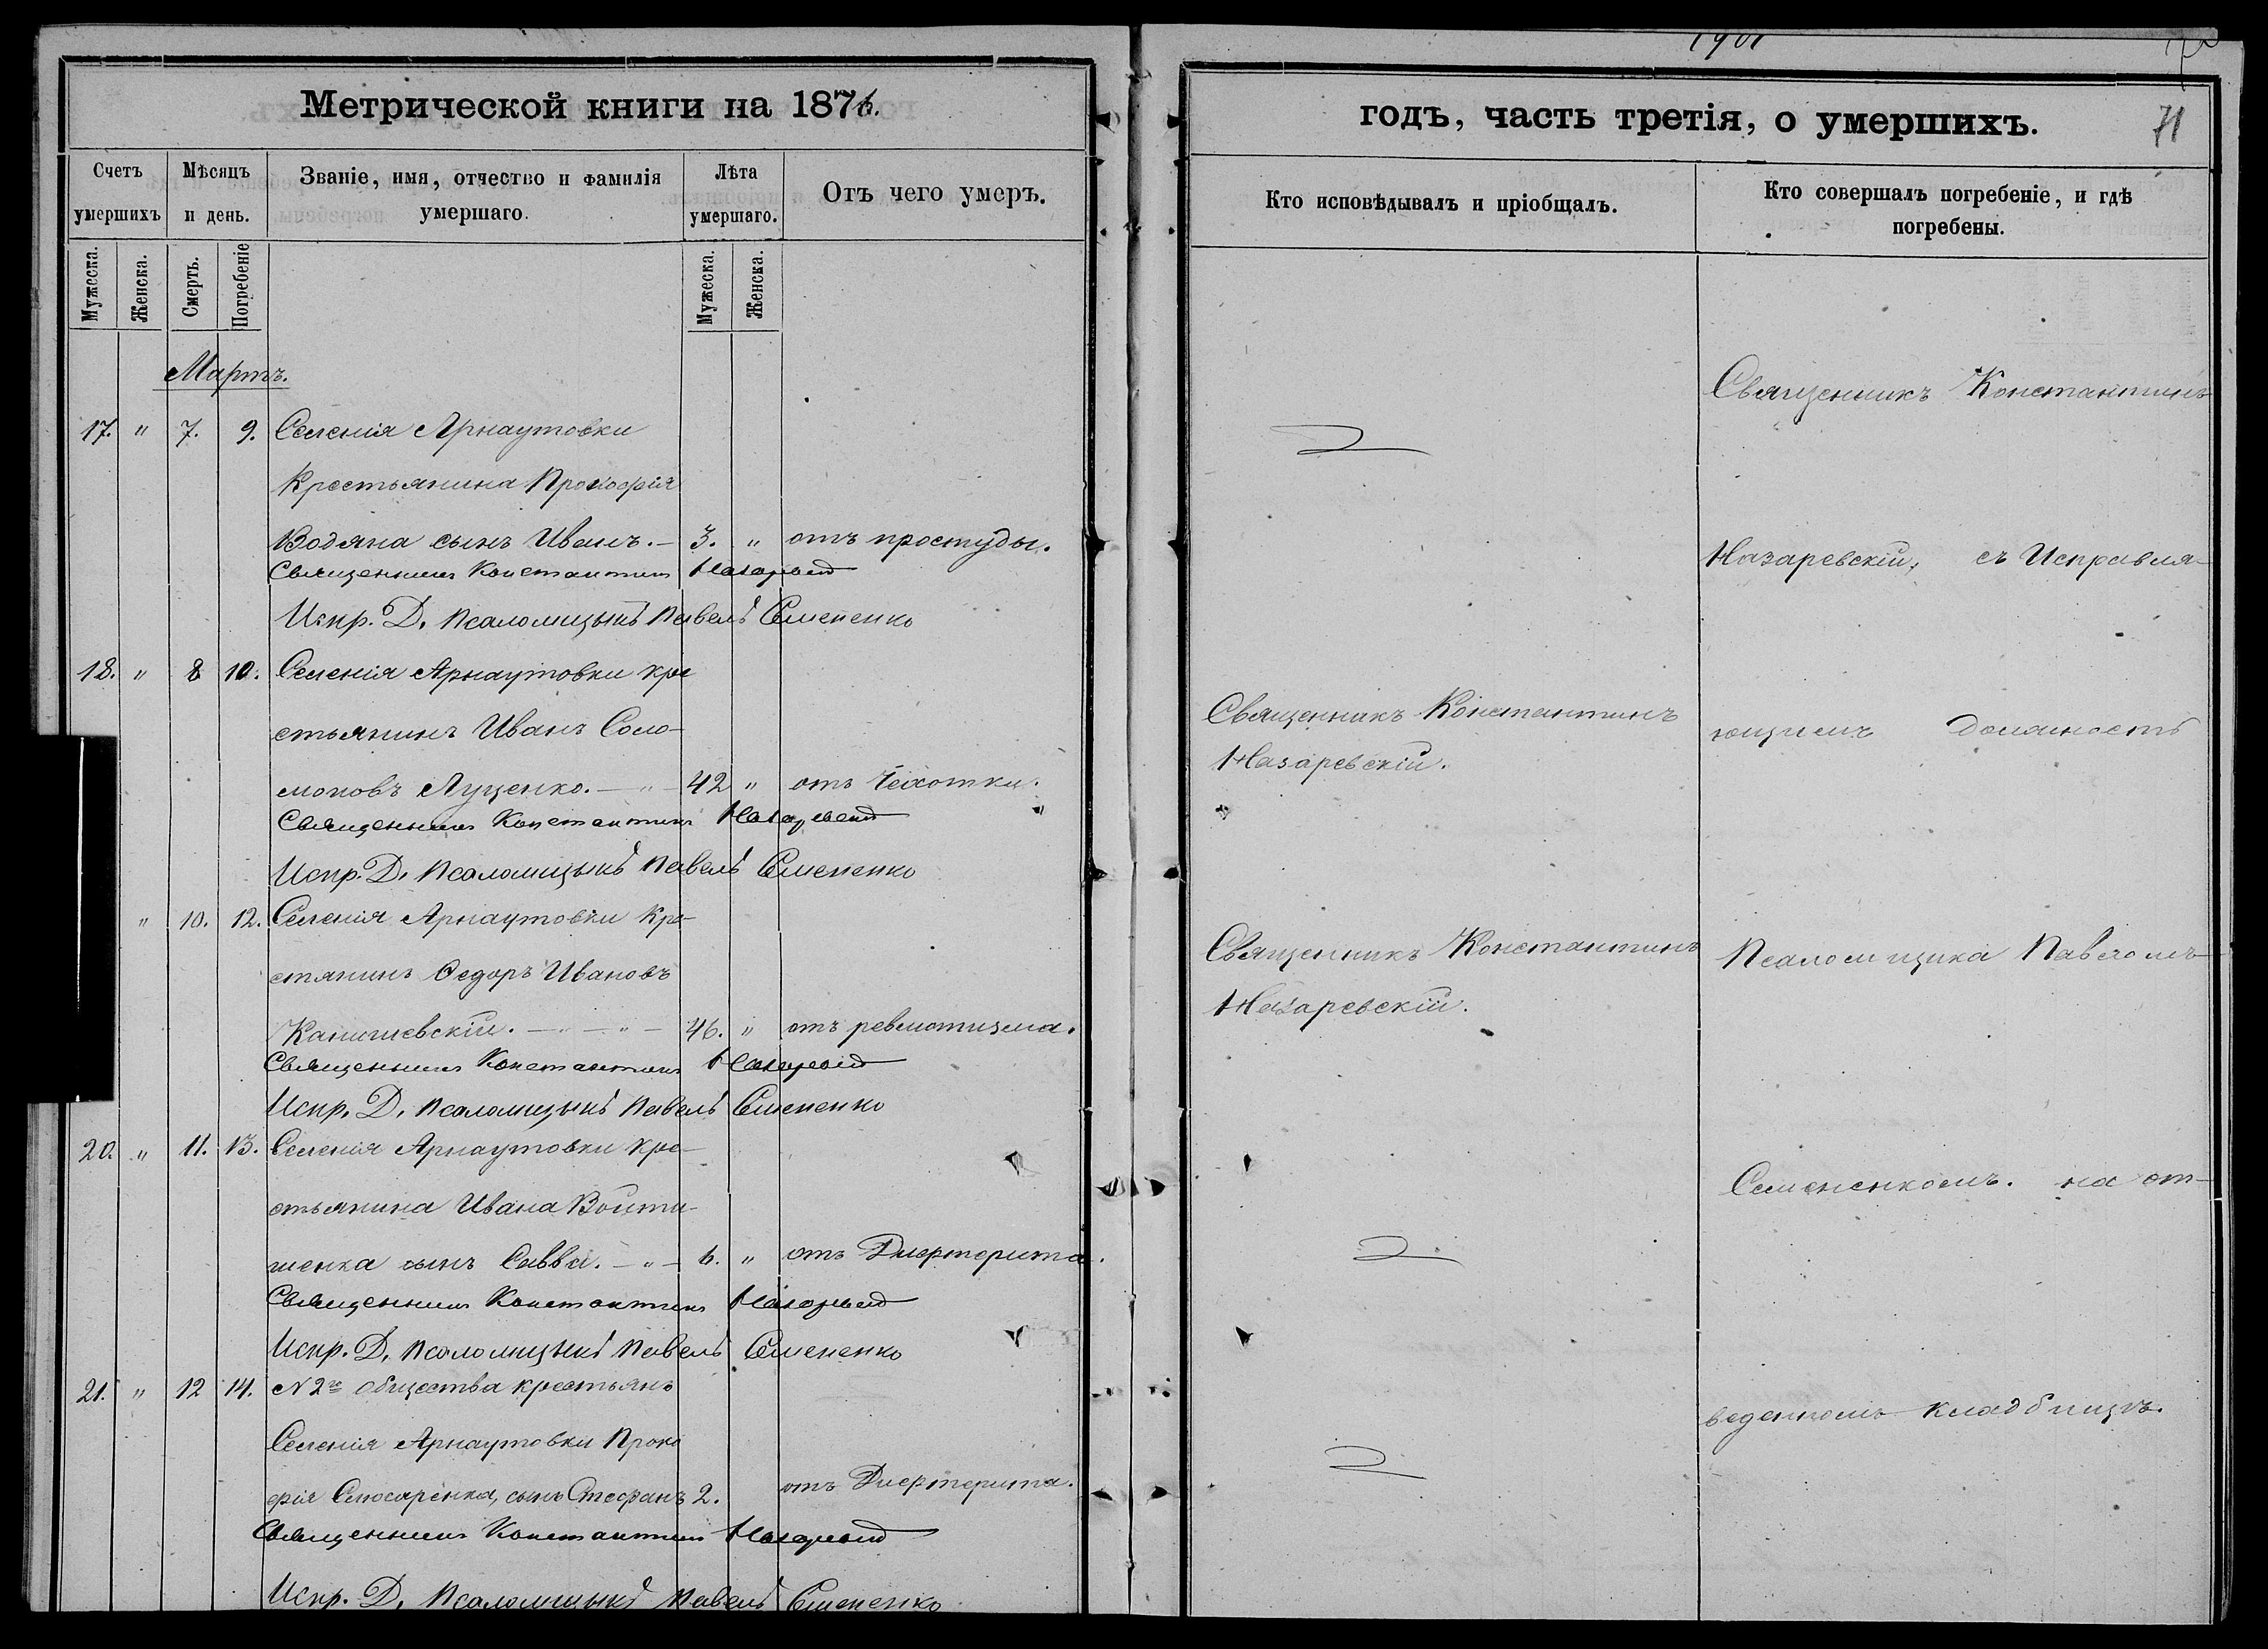 Метрической книги на 1876.
Счетъ умершихъ
Мѣсяцъ и день.
Званіе, имя, отчество и фамилія умершаго.
Лѣта умершаго.
Отъ чего умеръ.
Мужеска.
Женска.
Смерть.
Погребеніе
Мужеска.
Женска.
Мартъ.
17. " 7. 9. Селенія Арнаутовки
Крестьянина Прокофія
Водяна сынъ Иванъ. — 3. " отъ простуды.
Священникъ Константинъ
Испр. Д. Псаломщика Павелъ Семененко
18. " 8 10. Селенія Арнаутовки кре
стьянинъ Иванъ Соло-
моновъ Луценко. — " — 42 " отъ Чахотки.
Священникъ Константинъ
Испр. Д. Псаломщика Павелъ Семененко
" 10. 12. Селенія Арнаутовки Кре-
стянинъ Ѳедоръ Ивановъ
— " — " — 46. " отъ ревматизма.
Священникъ Константинъ
Испр. Д. Псаломщика Павелъ Семененко
20. " 11. 13. Селенія Арнаутовки кре-
стьянина Ивана Войти-
шенка сынъ Савва. — " — 6. " отъ Дифтерита.
Священникъ Константинъ
Испр. Д. Псаломщика Павелъ Семененко
21. " 12 14. N 2го общества крестьянъ
Селенія Арнаутовки Проко
фія Слюсаренка, сынъ Стефанъ 2. отъ Дифтерита.
Священникъ Константинъ
Испр. Д. Псаломщика Павелъ Семененко
годъ, часть третія, о умершихъ.
71
Кто исповѣдывалъ и пріобщалъ.
Кто совершалъ погребеніе, и гдѣ погребены.
Священникъ Константинъ
Назаревскій.
Священникъ Константинъ
Назаревскій.
Священникъ Константинъ
Назаревскій, съ Исправля-
ющимъ должность
Псаломщика Павломъ
Семененкомъ. на от-
веденномъ кладбищѣ.